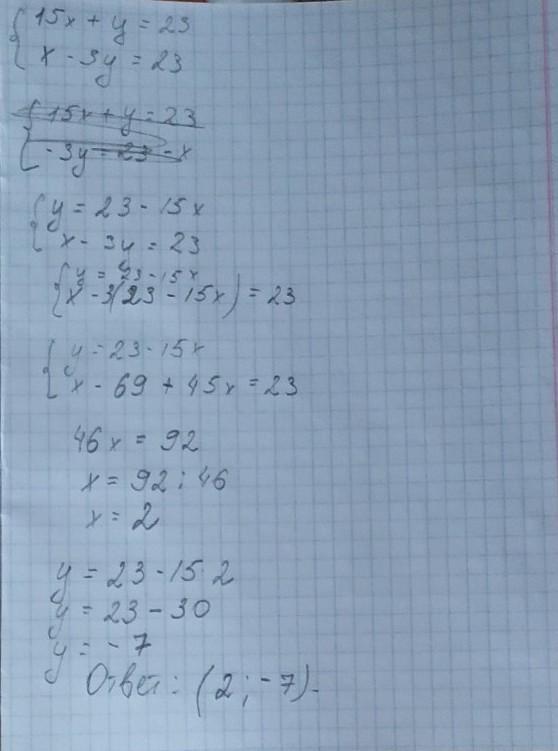 { 15x + y = 23
x - 3y = 23
{ 15x + y = 23
-3y = 23 - x
{ y = 23 - 15x
x - 3y = 23
{ y = 23 - 15x
x - 3(23 - 15x) = 23
{ y = 23 - 15x
x - 69 + 45x = 23
46x = 92
x = 92 : 46
x = 2
y = 23 - 15 2
y = 23 - 30
y = - 7
Ответ: (2; -7).